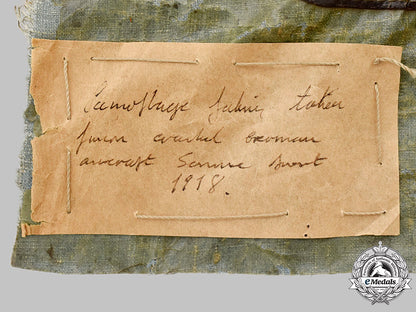 Camoflage fabric taken
from crashed German
aircraft Somme front
1918.
eMedals